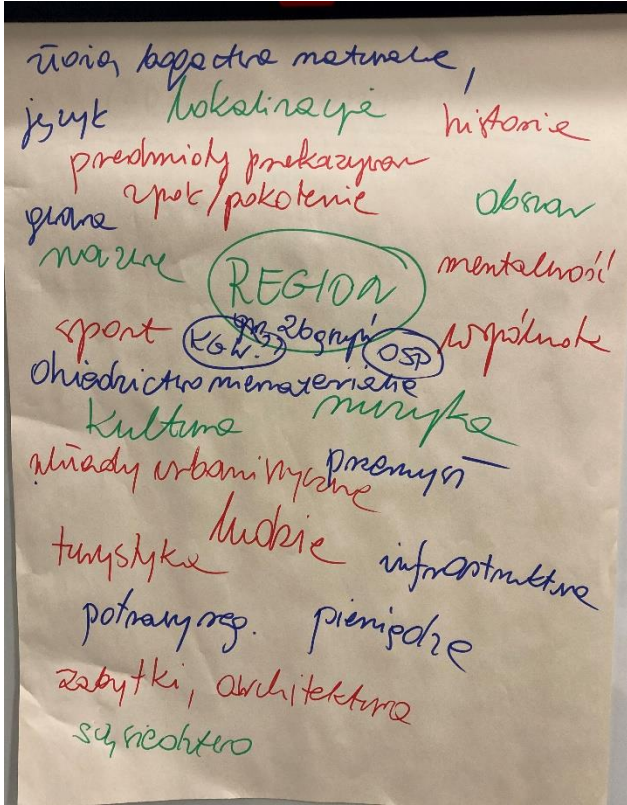 bogactwa naturalne,
język lokalizacja historia
przedmioty przekazywan
z pok/pokolenie obszar
gwara
nazwa REGION mentalność
sport KGW OSP wspólnota
dziedzictwo niematerialne
Kultura muzyka
układy urbanistyczne przemysł
ludzie
turystyka infrastruktura
potrawy reg. pieniądze
zabytki, architektura
sąsiedztwo